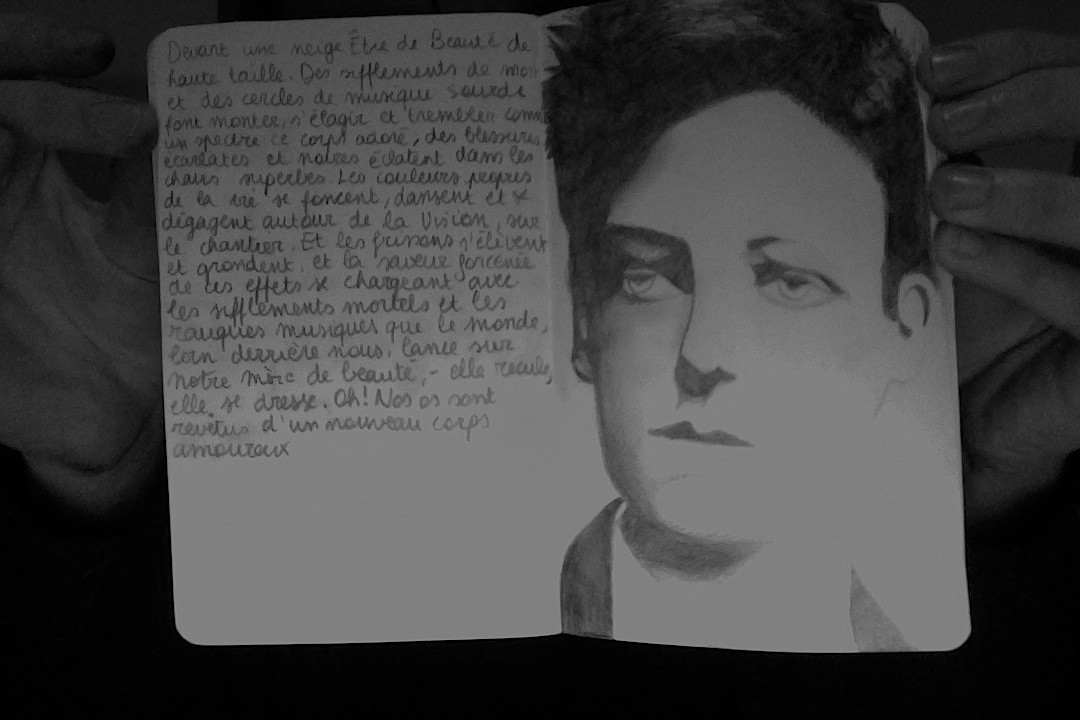 Devant une neige Être de Beauté de
haute taille. Des sifflements de mort
et des cercles de musique sourde
font monter, s'élagir et trembler comme
un spectre ce corps adoré, des blessures
écarlates et noires éclatent dans les
chairs superbes. Les couleurs propres
de la vie se foncent, dansent et se
dégagent autour de la Vision, sur
le chantier. Et les frissons s'élèvent
et grondent, et la saveur forcenée
de ces effets se chargeant avec
les sifflements mortels et les
rauques musiques que le monde,
loin derrière nous, lance sur
notre mère de beauté, - elle recule,
elle se dresse. Oh! Nos os sont
revêtus d'un nouveau corps
amoureux